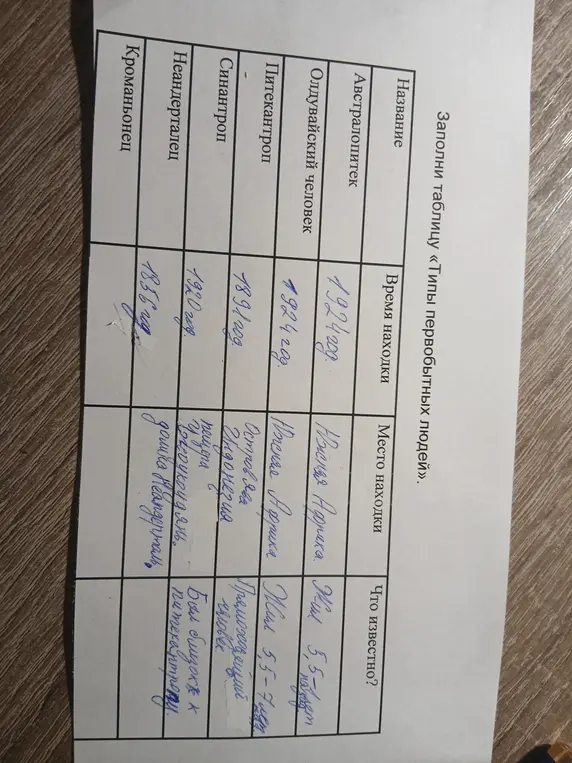 Заполни таблицу «Типы первобытных людей».
Название Время находки Место находки Что известно?
Австралопитек 1924 год. Южная Африка Жил 5,5-1 лет назад
Олдувайский человек 1924 год. Южная Африка Жил 5,5-1
Питекантроп 1891 год Индонезия Прямоходящий человек
Синантроп 1920 год пещера в Чжоукоудянь. Был близок к питекантропу.
Неандерталец 1856 год
Кроманьонец